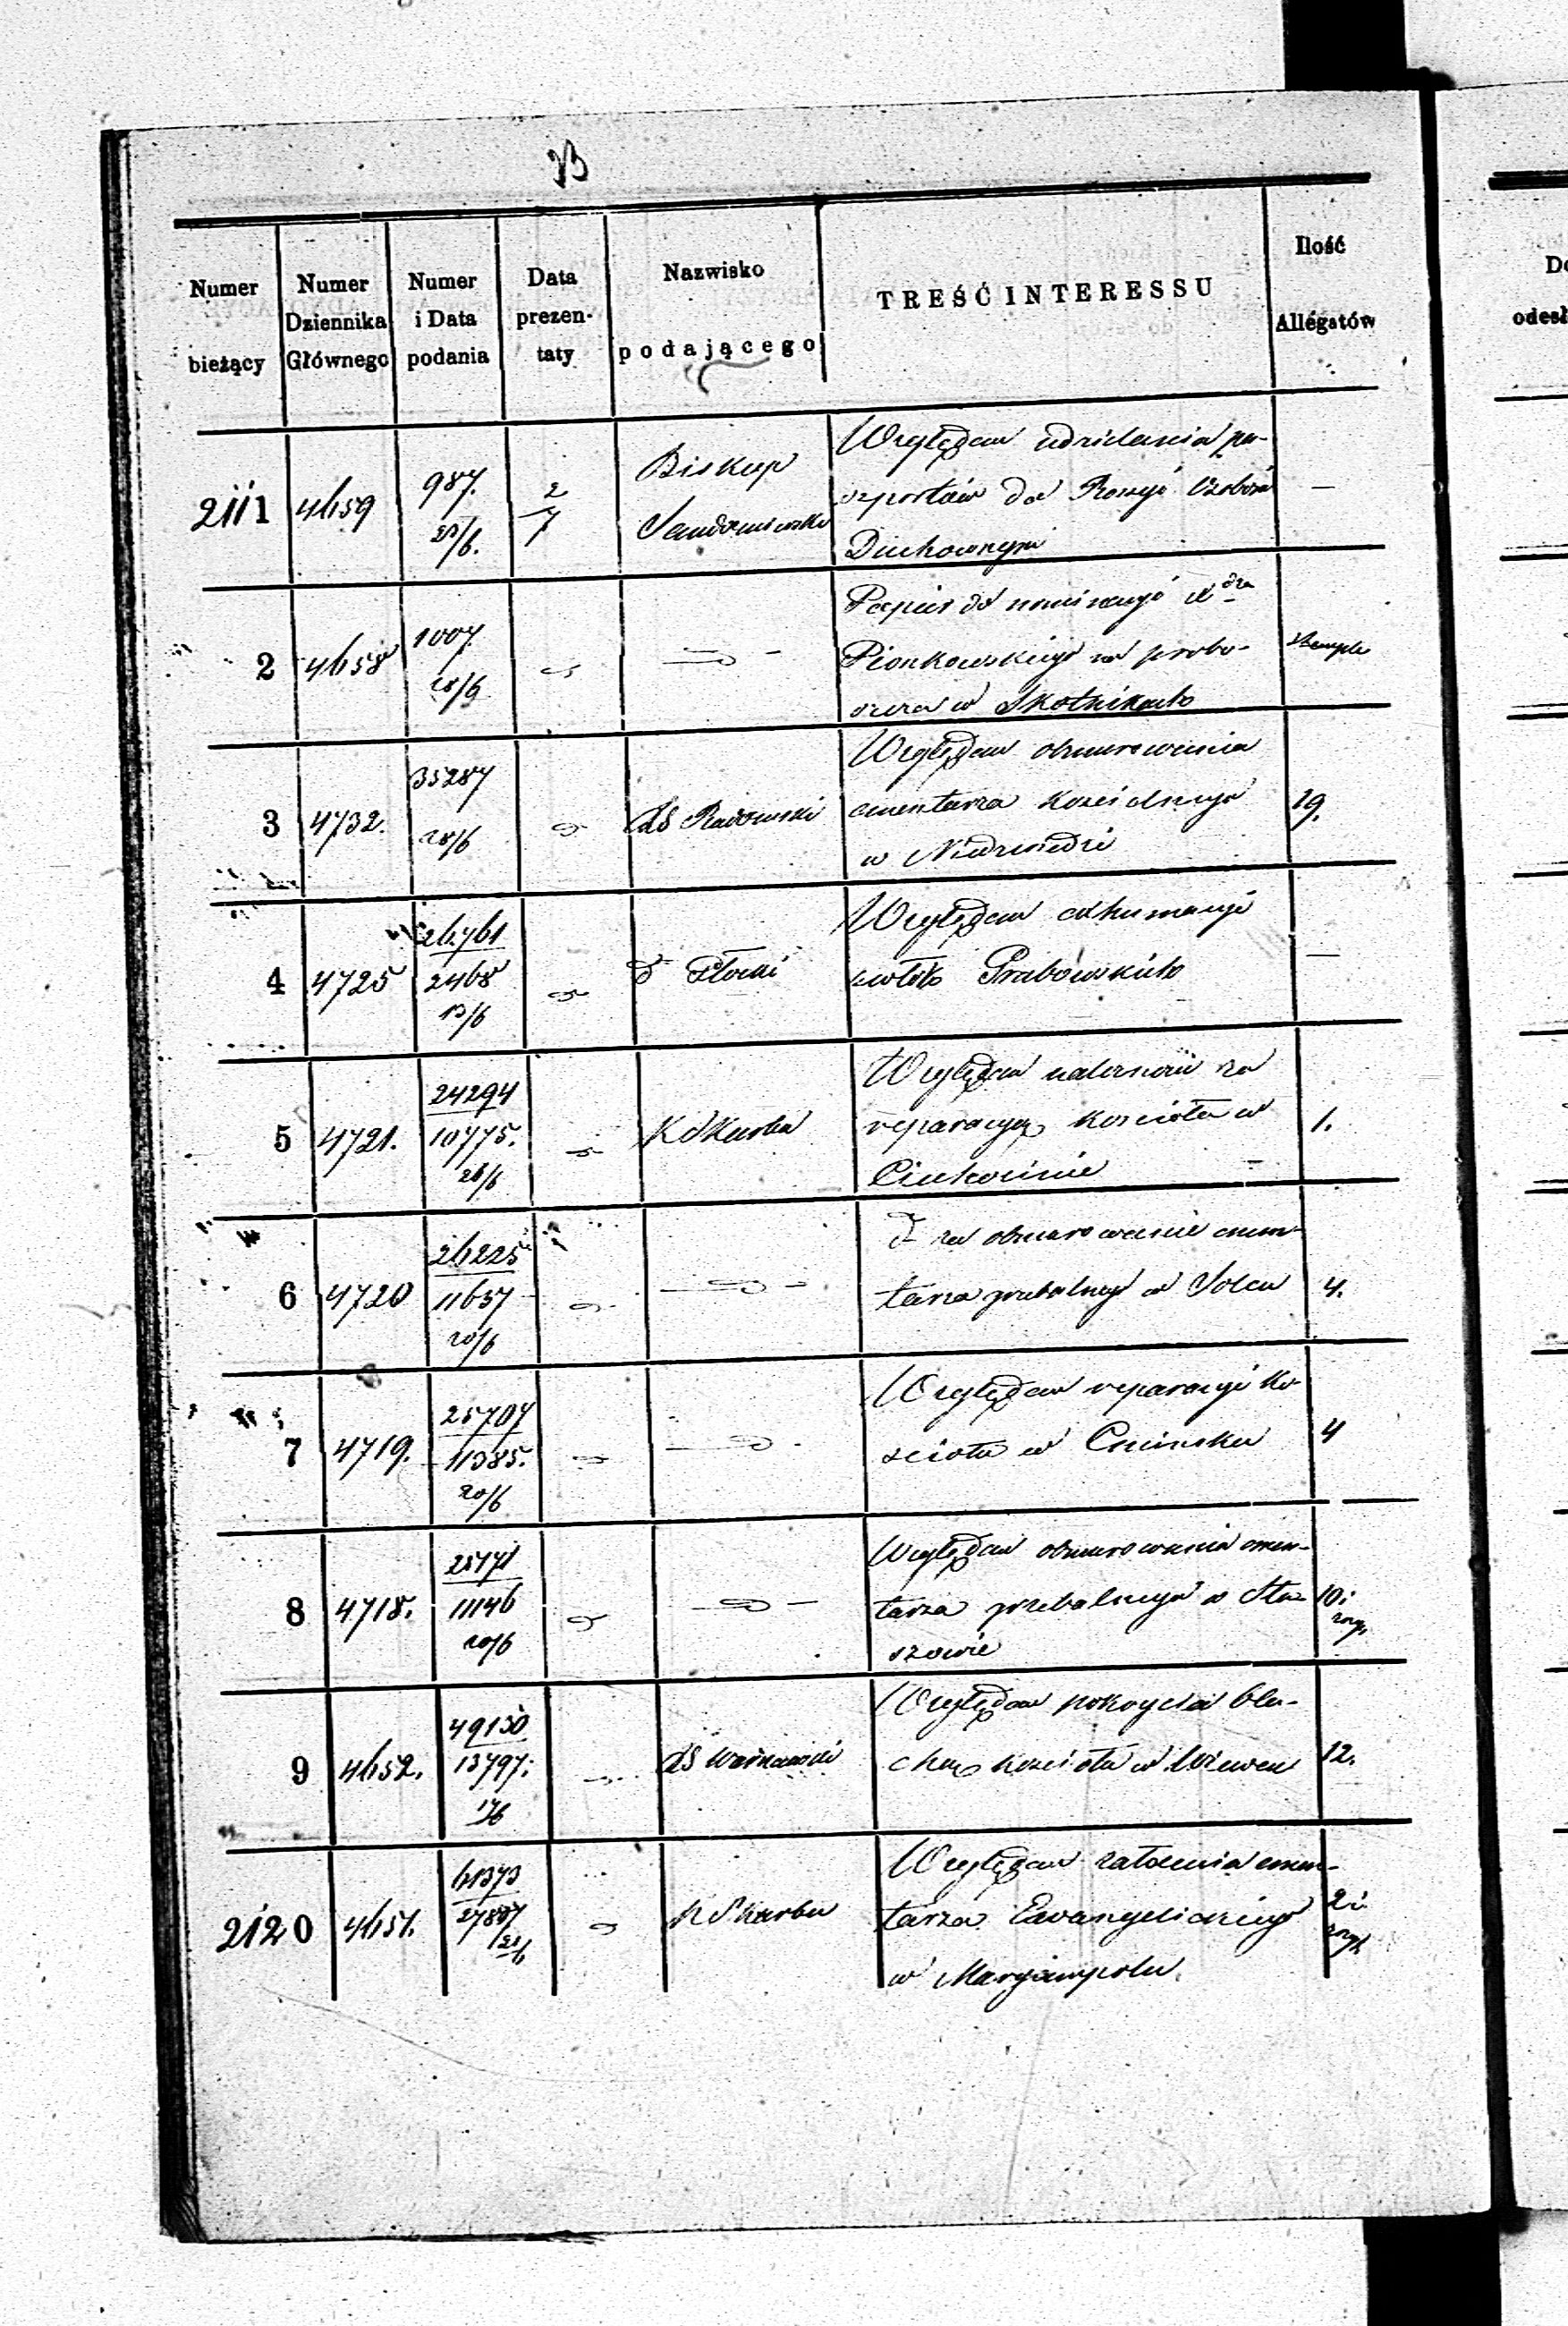 Numer bieżący
Numer Dziennika Głównego
Numer i Data podania
Data prezentaty
Nazwisko podającego
TREŚĆ INTERESSU
Ilość Allegatów
2111 4659 987. 2/7 Biskup
Względem udzielenia pa-
szportów do Rossyi Osobom
Duchownym —
2 4658 1007. 28/6
Papier do nominacyi
Pionkowskiego na probo-
szcza w Skotnikach
3 4732. 35287 28/6 Radomski
Względem obmurowania
cmentarza kościelnego
w Niedzwiedzi
19.
4 4725 26761 2468 13/6 Płocki
Względem exhumacyi
zwłok Grabowskich —
5 4721. 24294 10775. 26/6 K Skarbu
Względem należności za
reparacyą kościoła w
1.
6 4720 26225 11657 20/6
za obmurowanie cmen-
tarza grzebalnego w Solcu
4.
7 4719. 25707 11385. 20/6
Względem reparacyi ko-
ścioła w Cmińsku
4
8 4718. 11146 20/6
Względem obmurowania cmen-
tarza grzebalnego w Sta-
szowie
10
9 4652. 49130 13797. Warszawski
Względem pokrycia bla-
chą kościoła w
12.
2120 4651. 61373 K Skarbu
Względem założenia cmen-
tarza Ewangelickiego
w Maryampolu
2